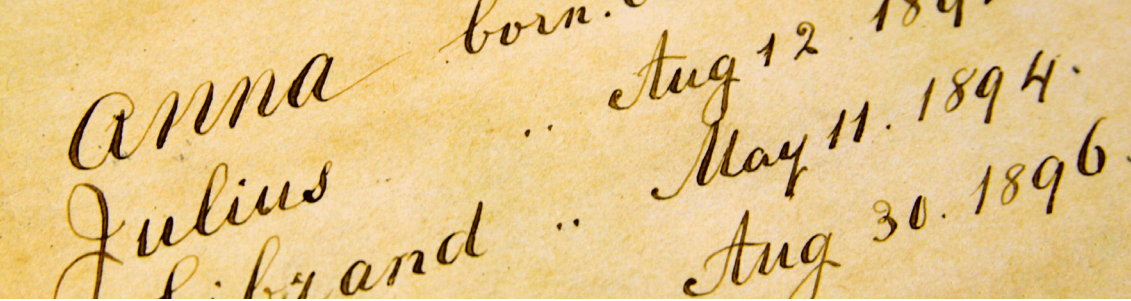 Anna born.
Julius .. Aug 12
.. May 11. 1894.
Aug 30. 1896.